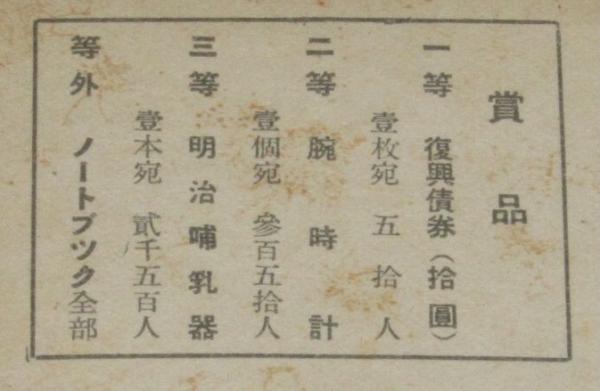 賞品
一等 復興債券(拾圓)
壹枚宛 五拾人
二等 腕時計
壹個宛 參百五拾人
三等 明治哺乳器
壹本宛 貳千五百人
等外 ノートブツク全部